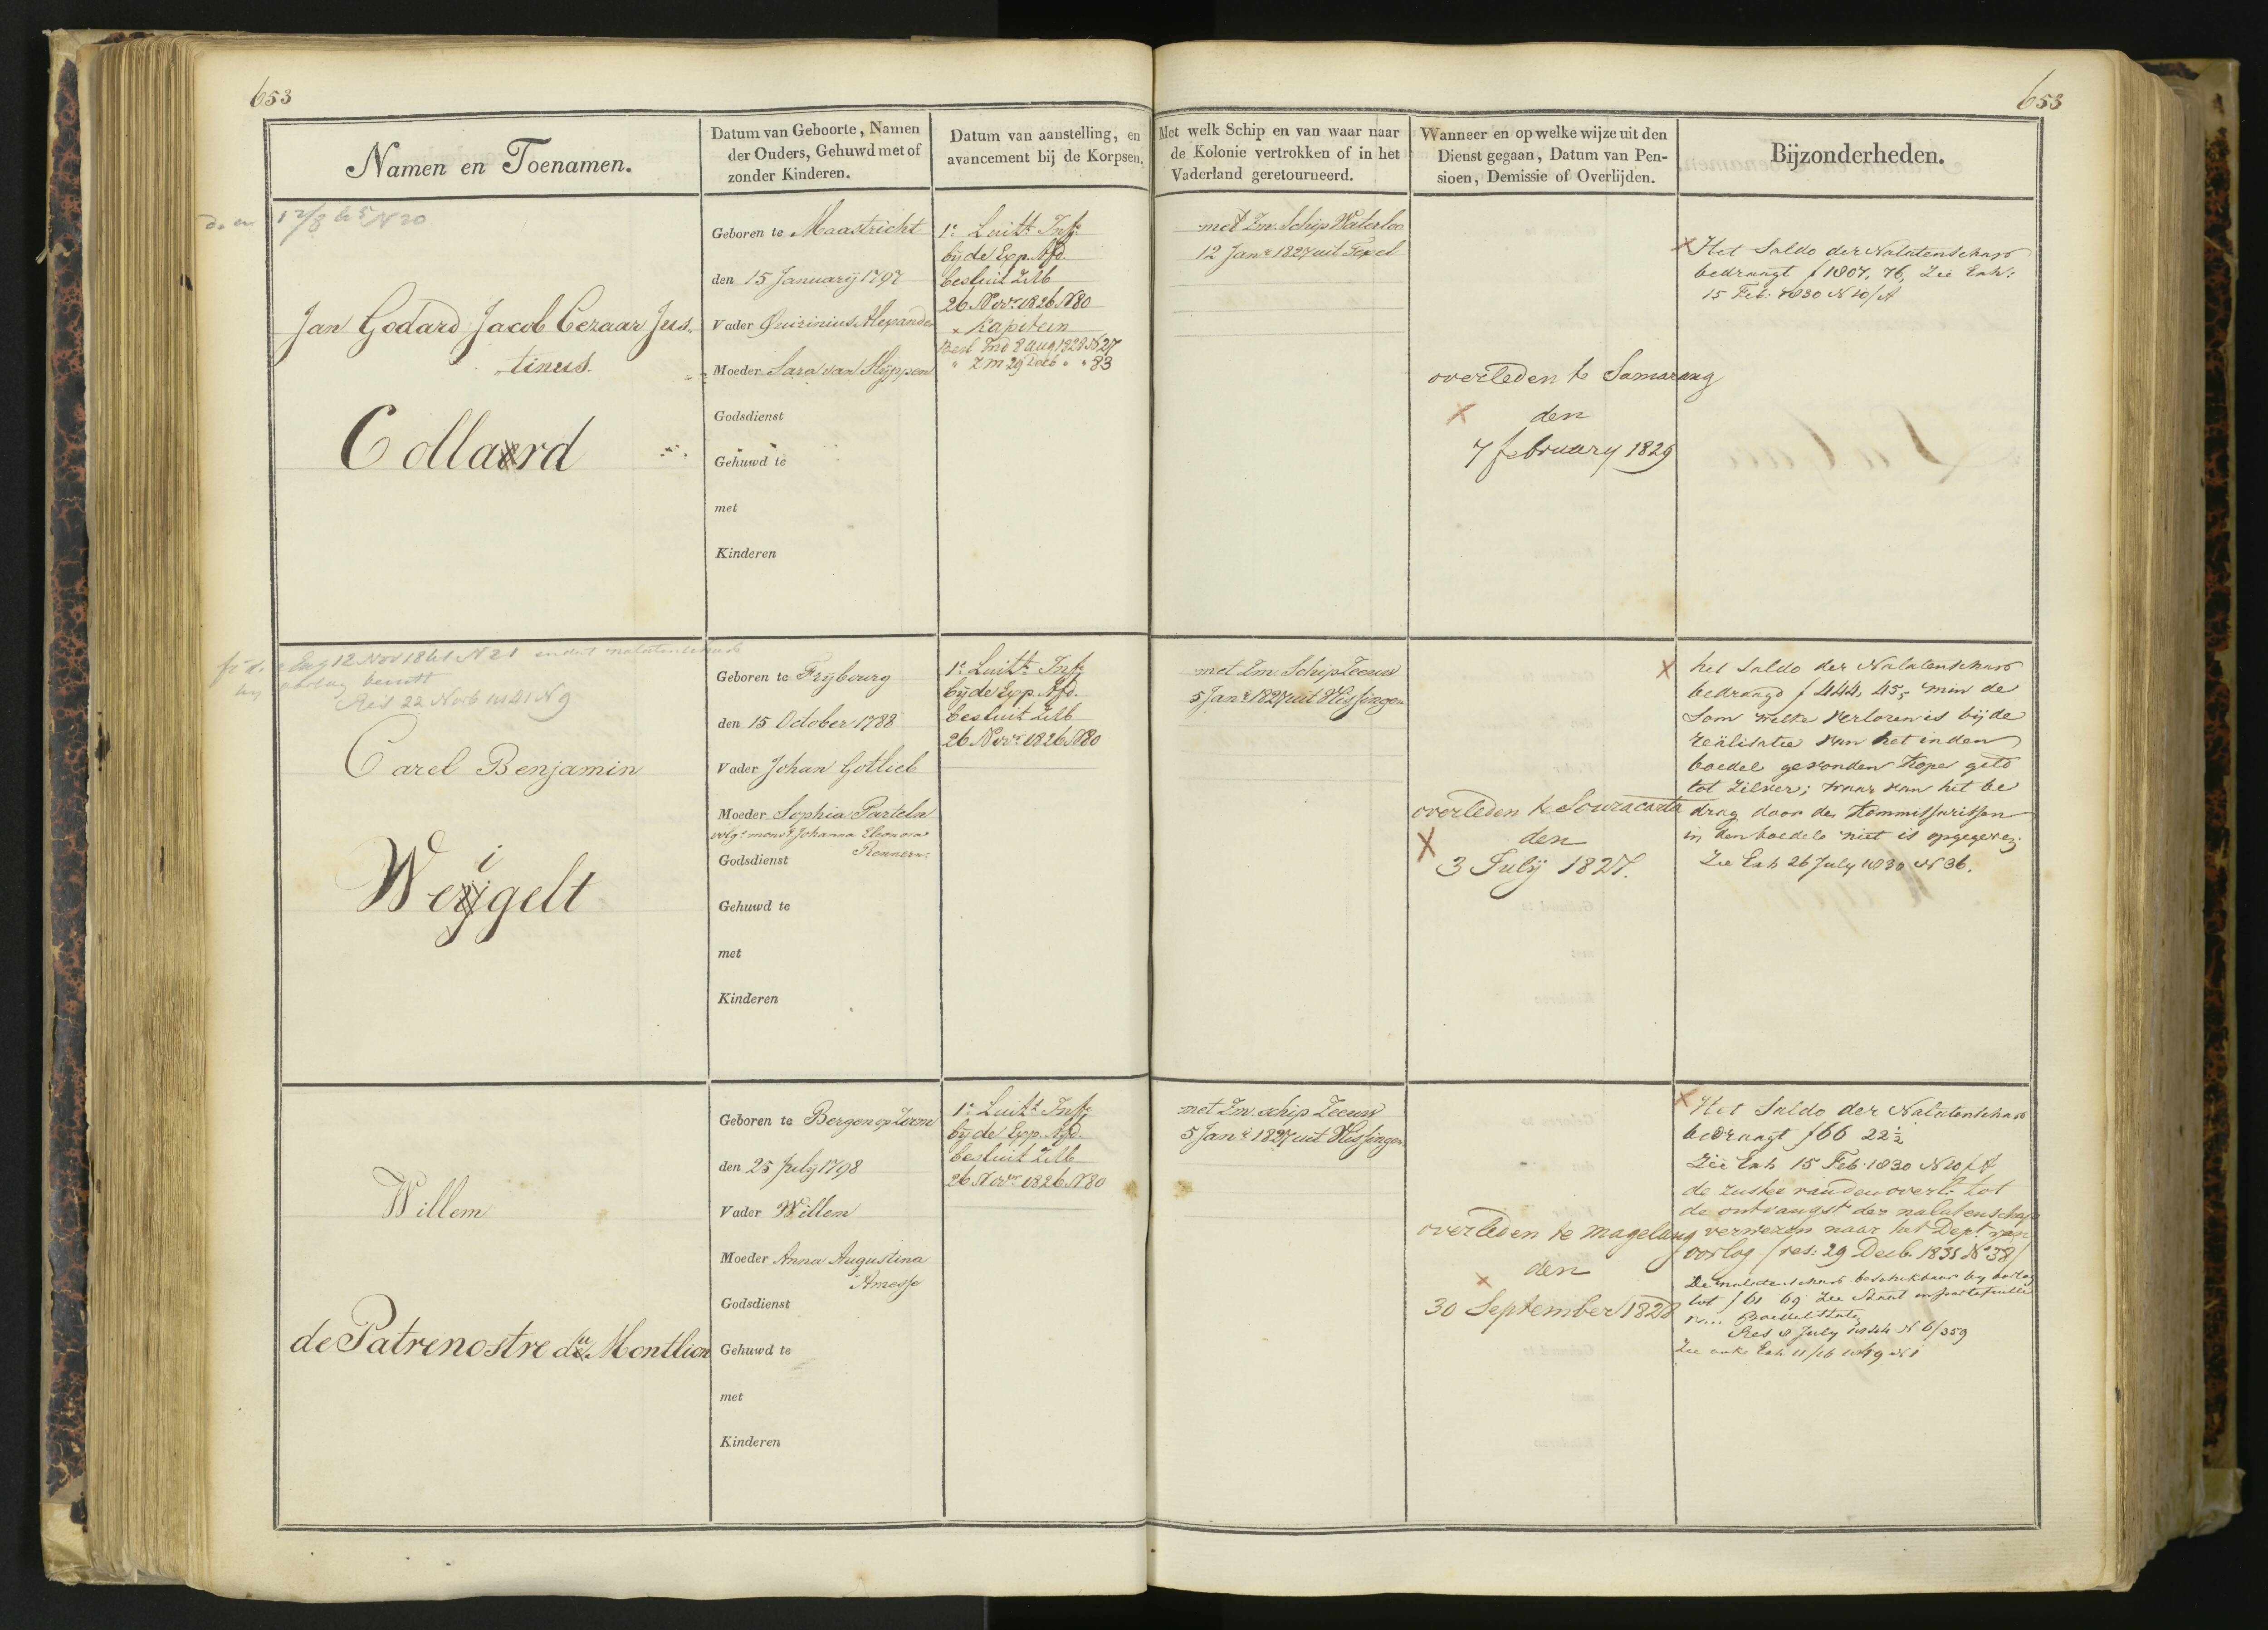 653
653
Namen en Toenamen.
Datum van Geboorte, Namen
der Ouders, Gehuwd met of
zonder Kinderen.
Datum van aanstelling, en
avancement bij de Korpsen.
Met welk Schip en van waar naar
de Kolonie vertrokken of in het
Vaderland geretourneerd.
Wanneer en op welke wijze uit den
Dienst gegaan, Datum van Pen-
sioen, Demissie of Overlijden.
Bijzonderheden.
Jan Godard Jacob Cezaar Jus-
tinus.
Collaerd
Geboren te Maastricht
den 15 Januarij 1797
Vader Quirinius Alexander
Moeder Sara van Slijppen
Godsdienst
Gehuwd te
met
Kinderen
1e Luitt. Infie
bij de Exp. Afd.
besluit ZMb
26 Novr 1826 N80
x Kapitein
Besl Ind 8 Aug 1828 N 27
" ZM 29 Decb " " 83
met Zm. Schip Waterloo
12 Janr 1827 uit Texel
overleden te Samarang
x den
7 february 1829
x Het Saldo der Nalatenschap
bedraagt f 1807, 76, Zie Exh:
15 Feb: 1830 N 10/A
12 Nov 1841 N 21
Res 22 Novb 1841 N 9
Carel Benjamin
Weigelt
Geboren te Frijbourg
den 15 October 1788
Vader Johan Gotlieb
Moeder Sophia Parteln
volgs monst Johanna Eleonora
Rennern.
Godsdienst
Gehuwd te
met
Kinderen
1e Luitt. Infie
bij de Exp. Afd.
besluit ZMb
26 Novr 1826 N80
met Zm. Schip Zeeuw
5 Janr 1827 uit Vlissingen
overleden te Souracarta
X den
3 Julij 1827.
X het Saldo der Nalatenschap
bedraagd f 444, 45,- min de
Som welke verloren is bij de
realisatie van het in den
boedel gevonden koper geld
tot zilver; waar van het be
drag door de Kommissarissen
in den boedele niet is opgegeven;
Zie Exh 26 July 1830 N 36.
Willem
de Patrenostre du Montlion
Geboren te Bergen op Zoom
den 25 July 1798
Vader Willem
Moeder Anna Augustina
Amesse
Godsdienst
Gehuwd te
met
Kinderen
1e Luitt. Infie
bij de Exp. Afd.
besluit ZMb
26 Novr 1826 N80
met Zm. schip Zeeuw
5 Janr 1827 uit Vlissingen
overleden te Magelang
x den
30 September 1828
x Het Saldo der Nalatenschap
bedraagt f 66 22½
Zie Exh 15 Feb. 1830 N 10/A
de zuster van den overl: tot
de ontvangst der nalatenschap
verwezen naar het Dept. van
oorlog (res: 29 Decb. 1835 No 38)
De nalatenschap beschikbaar by oorlog
tot f 61 69 Zie Staat in portefeuille
Boedelstaten
Res 8 July 1844 N 6/359
Zie ook Exh 11/16 1849 N 1